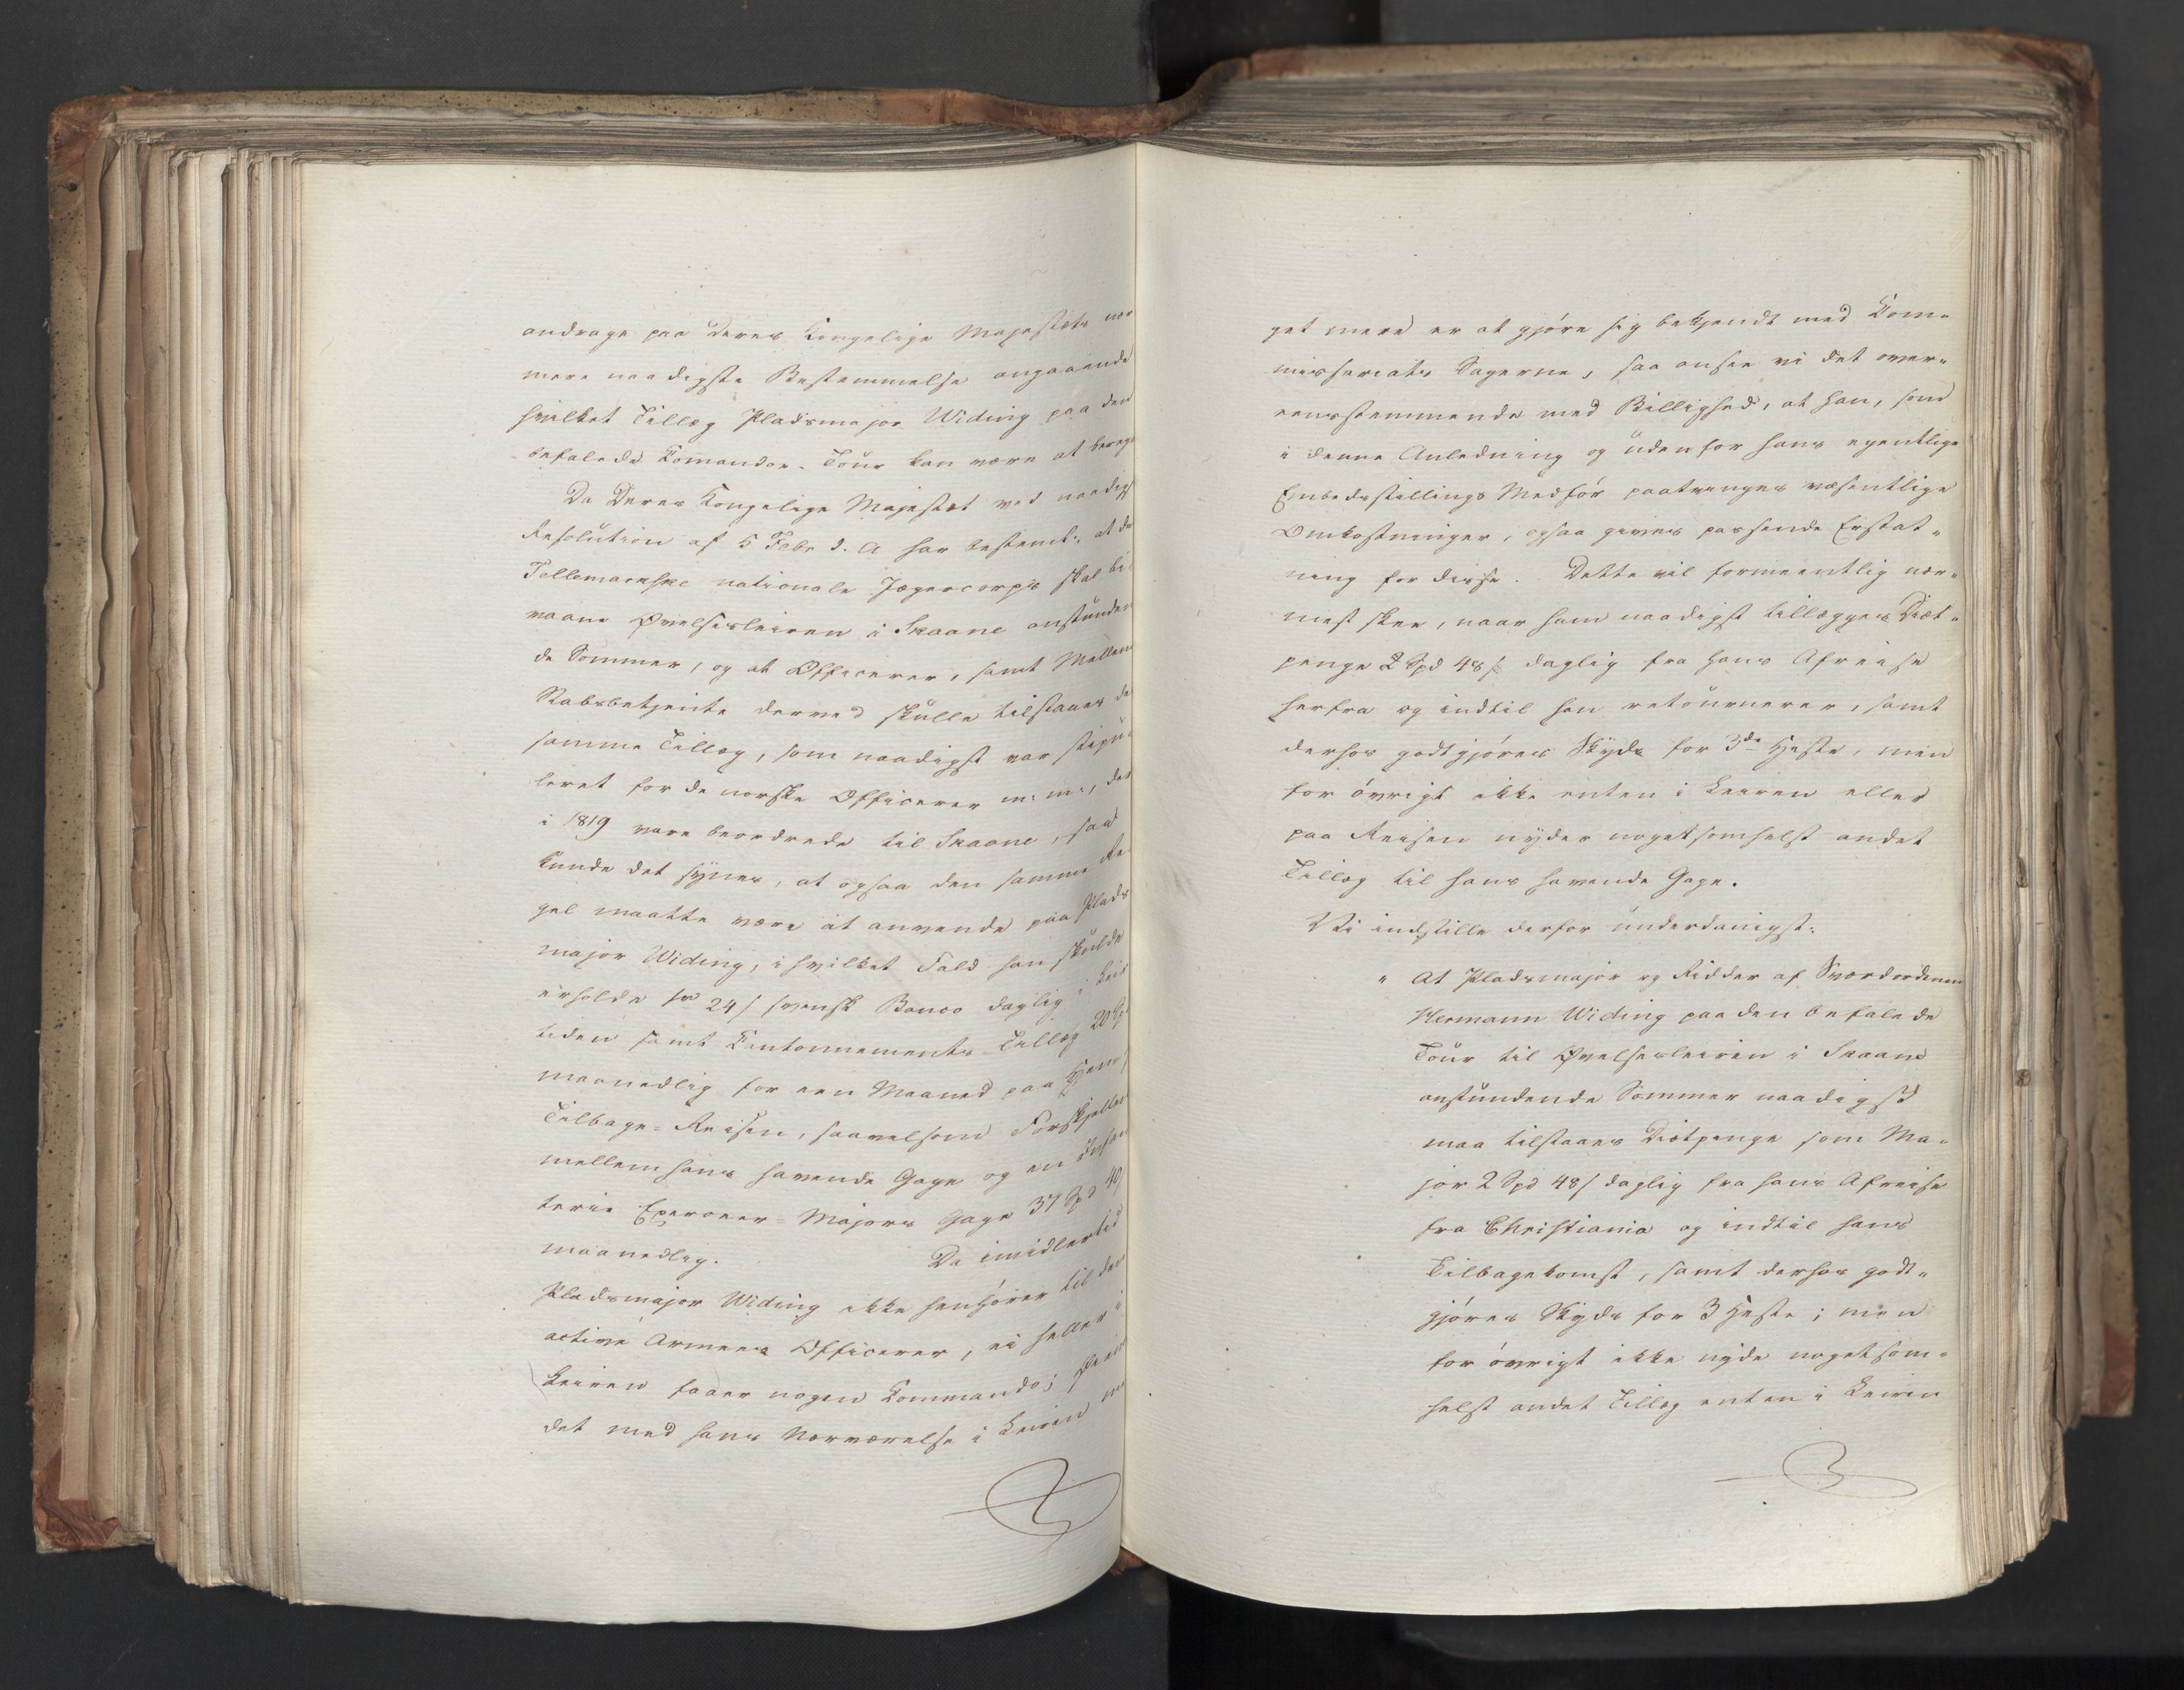 andrage paa Deres Kongelige Majestæts nær
mere naadigste Bestemmelse angaaende
hvilket Tillæg Pladsmajor Widing paa den
befalede Komandoe-Tour kan være at bereg
Da Deres Kongelige Majestæt ved naadigst
Resolution af 5 Febr d. A har bestemt, at de
Tellemarkske nationale Jægercorps skal bi-
vaane Øvelsesleiren i Skaane anstunden
de Sommer, og at Officerer, samt Mellem
Stabsbetjente derved skulle tilstaaes de
samme Tillæg, som naadigst var stipu-
leret for de norske Officerer m: m:, der
i 1819 vare beordrede til Skaane, saa
kunde det synes, at ogsaa den samme Re-
gel maatte være at anvende paa Plads
major Widing, i hvilket Fald han skulde
erholde 24 s svensk Banco daglig i Leir
tiden samt Kantonnements-Tillæg 20 Sp
maanedlig for een Maaned paa Hen /
Tilbage-Reisen, saavelsom Forskjellen
mellem hans havende Gage og en Infan
terie Exerceer-Majors Gage 37 Spd 40 s
maanedlig. Da imidlertid
Pladsmajor Widing ikke henhører til den
active Armees Officerer, ei heller i
Leiren faaer nogen Kommando;
det med hans Nærværelse i Leiren
get mere er at gjøre sig bekjendt med Kom-
missariats Sagerne, saa ansee vi det over-
eensstemmende med Billighed, at han, som
i denne Anledning og udenfor hans egentlige
Embedsstillings Medfør paatvinges væsentlige
Omkostninger, ogsaa gives passende Erstat-
ning for disse. Dette vil formeentlig nær-
mest skee, naar ham naadigst tillægges Diæt-
penge 2 Spd 48 s daglig fra hans Afreise
herfra og indtil han retournerer, samt
derhos godtgjøres Skyds for 3de Heste, men
for øvrigt ikke enten i Leiren eller
paa Reisen nyder nogetsomhelst andet
Tillæg til hans havende Gage.
Vi indstille derfor underdanigst:
" At Pladsmajor og Ridder af Sværdordenen
Hermann Widing paa den befalede
Tour til Øvelsesleiren i Skaane
anstundende Sommer naadigst
maa tilstaaes Diætpenge som Ma-
jor 2 Spd 48 s daglig fra hans Afreise
fra Christiania og indtil hans
Tilbagekomst, samt derhos godt-
gjøres Skyds for 3 Heste; men
for øvrigt ikke nyde nogetsom-
helst andet Tillæg enten i Leiren